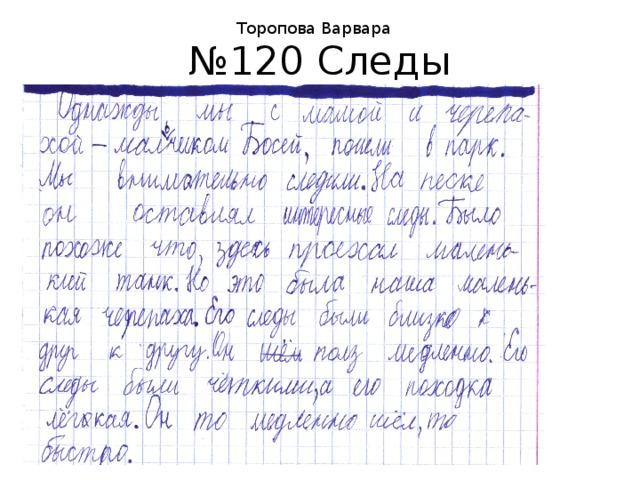 Торопова Варвара
№120 Следы
Однажды мы с мамой и черепа-
хой – мальчиком Босей, пошли в парк.
Мы внимательно следили. На песке
он оставлял интересные следы. Было
похоже что, здесь проехал малень-
кий танк. Но это была наша малень-
кая черепаха. Его следы были близко к
друг к другу. Он шёл полз медленно. Его
следы были чёткими, а его походка
лёгькая. Он то медленно шёл, то
быстро.